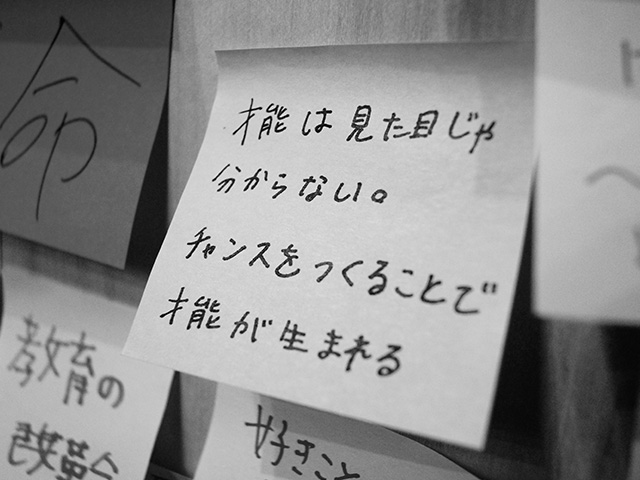 命
才能は見た目じゃ
分からない。
チャンスをつくることで
才能が生まれる
教育の
改革合
好きこと